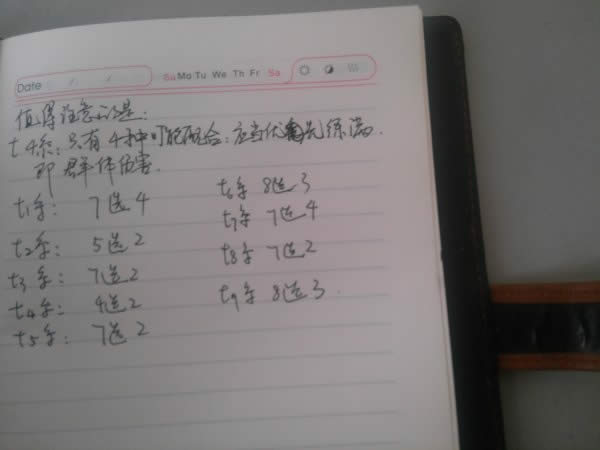 Date / /
Su Mo Tu We Th Fr Sa
值得注意的是:
t4系: 只有4种可能配合: 应当优先练满.
即群体伤害.
t1系: 7选4
t2系: 5选2
t3系: 7选2
t4系: 4选2
t5系: 7选2
t6系 8选3
t7系 7选4
t8系 7选2
t9系 8选3.